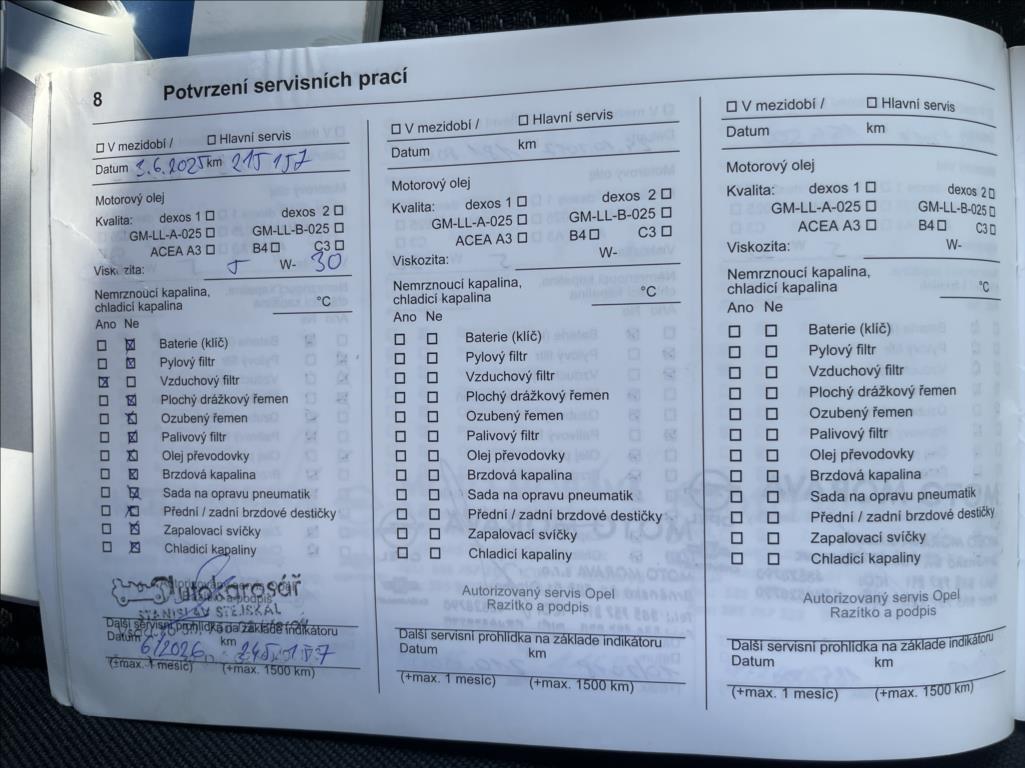 8 Potvrzení servisních prací
☐ V mezidobí / ☐ Hlavní servis
Datum 3.6.2025 km 215 157
Motorový olej
Kvalita: dexos 1 ☐ dexos 2 ☐
GM-LL-A-025 ☐ GM-LL-B-025 ☐
ACEA A3 ☐ B4 ☐ C3 ☐
Viskozita: 5 W- 30
Nemrznoucí kapalina,
chladicí kapalina °C
Ano Ne
☐ ☒ Baterie (klíč)
☐ ☒ Pylový filtr
☒ ☐ Vzduchový filtr
☐ ☒ Plochý drážkový řemen
☐ ☒ Ozubený řemen
☐ ☒ Palivový filtr
☐ ☒ Olej převodovky
☐ ☒ Brzdová kapalina
☐ ☒ Sada na opravu pneumatik
☐ ☒ Přední / zadní brzdové destičky
☐ ☒ Zapalovací svíčky
☐ ☒ Chladicí kapaliny
Autokarosář
STANISLAV STEJSKAL
Další servisní prohlídka na základě indikátoru
Datum km
6/2026 245.157
(+max. 1 měsíc) (+max. 1500 km)
☐ V mezidobí / ☐ Hlavní servis
Datum km
Motorový olej
Kvalita: dexos 1 ☐ dexos 2 ☐
GM-LL-A-025 ☐ GM-LL-B-025 ☐
ACEA A3 ☐ B4 ☐ C3 ☐
Viskozita: W-
Nemrznoucí kapalina,
chladicí kapalina °C
Ano Ne
☐ ☐ Baterie (klíč)
☐ ☐ Pylový filtr
☐ ☐ Vzduchový filtr
☐ ☐ Plochý drážkový řemen
☐ ☐ Ozubený řemen
☐ ☐ Palivový filtr
☐ ☐ Olej převodovky
☐ ☐ Brzdová kapalina
☐ ☐ Sada na opravu pneumatik
☐ ☐ Přední / zadní brzdové destičky
☐ ☐ Zapalovací svíčky
☐ ☐ Chladicí kapaliny
Autorizovaný servis Opel
Razítko a podpis
Další servisní prohlídka na základě indikátoru
Datum km
(+max. 1 měsíc) (+max. 1500 km)
☐ V mezidobí / ☐ Hlavní servis
Datum km
Motorový olej
Kvalita: dexos 1 ☐ dexos 2 ☐
GM-LL-A-025 ☐ GM-LL-B-025 ☐
ACEA A3 ☐ B4 ☐ C3 ☐
Viskozita: W-
Nemrznoucí kapalina,
chladicí kapalina °C
Ano Ne
☐ ☐ Baterie (klíč)
☐ ☐ Pylový filtr
☐ ☐ Vzduchový filtr
☐ ☐ Plochý drážkový řemen
☐ ☐ Ozubený řemen
☐ ☐ Palivový filtr
☐ ☐ Olej převodovky
☐ ☐ Brzdová kapalina
☐ ☐ Sada na opravu pneumatik
☐ ☐ Přední / zadní brzdové destičky
☐ ☐ Zapalovací svíčky
☐ ☐ Chladicí kapaliny
Autorizovaný servis Opel
Razítko a podpis
Další servisní prohlídka na základě indikátoru
Datum km
(+max. 1 měsíc) (+max. 1500 km)